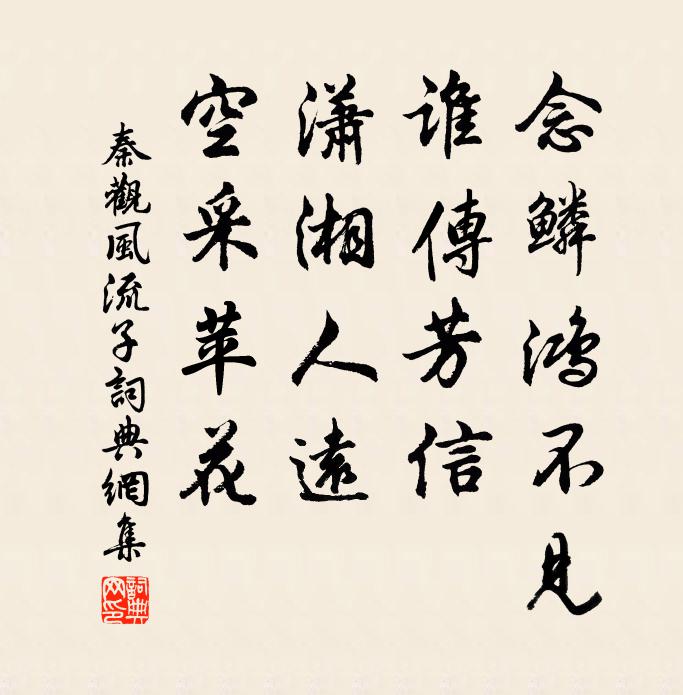 念鱗鴻不見
誰傳芳信
瀟湘人遠
空采苹花
秦觀風流子詞典網集
詞典網印